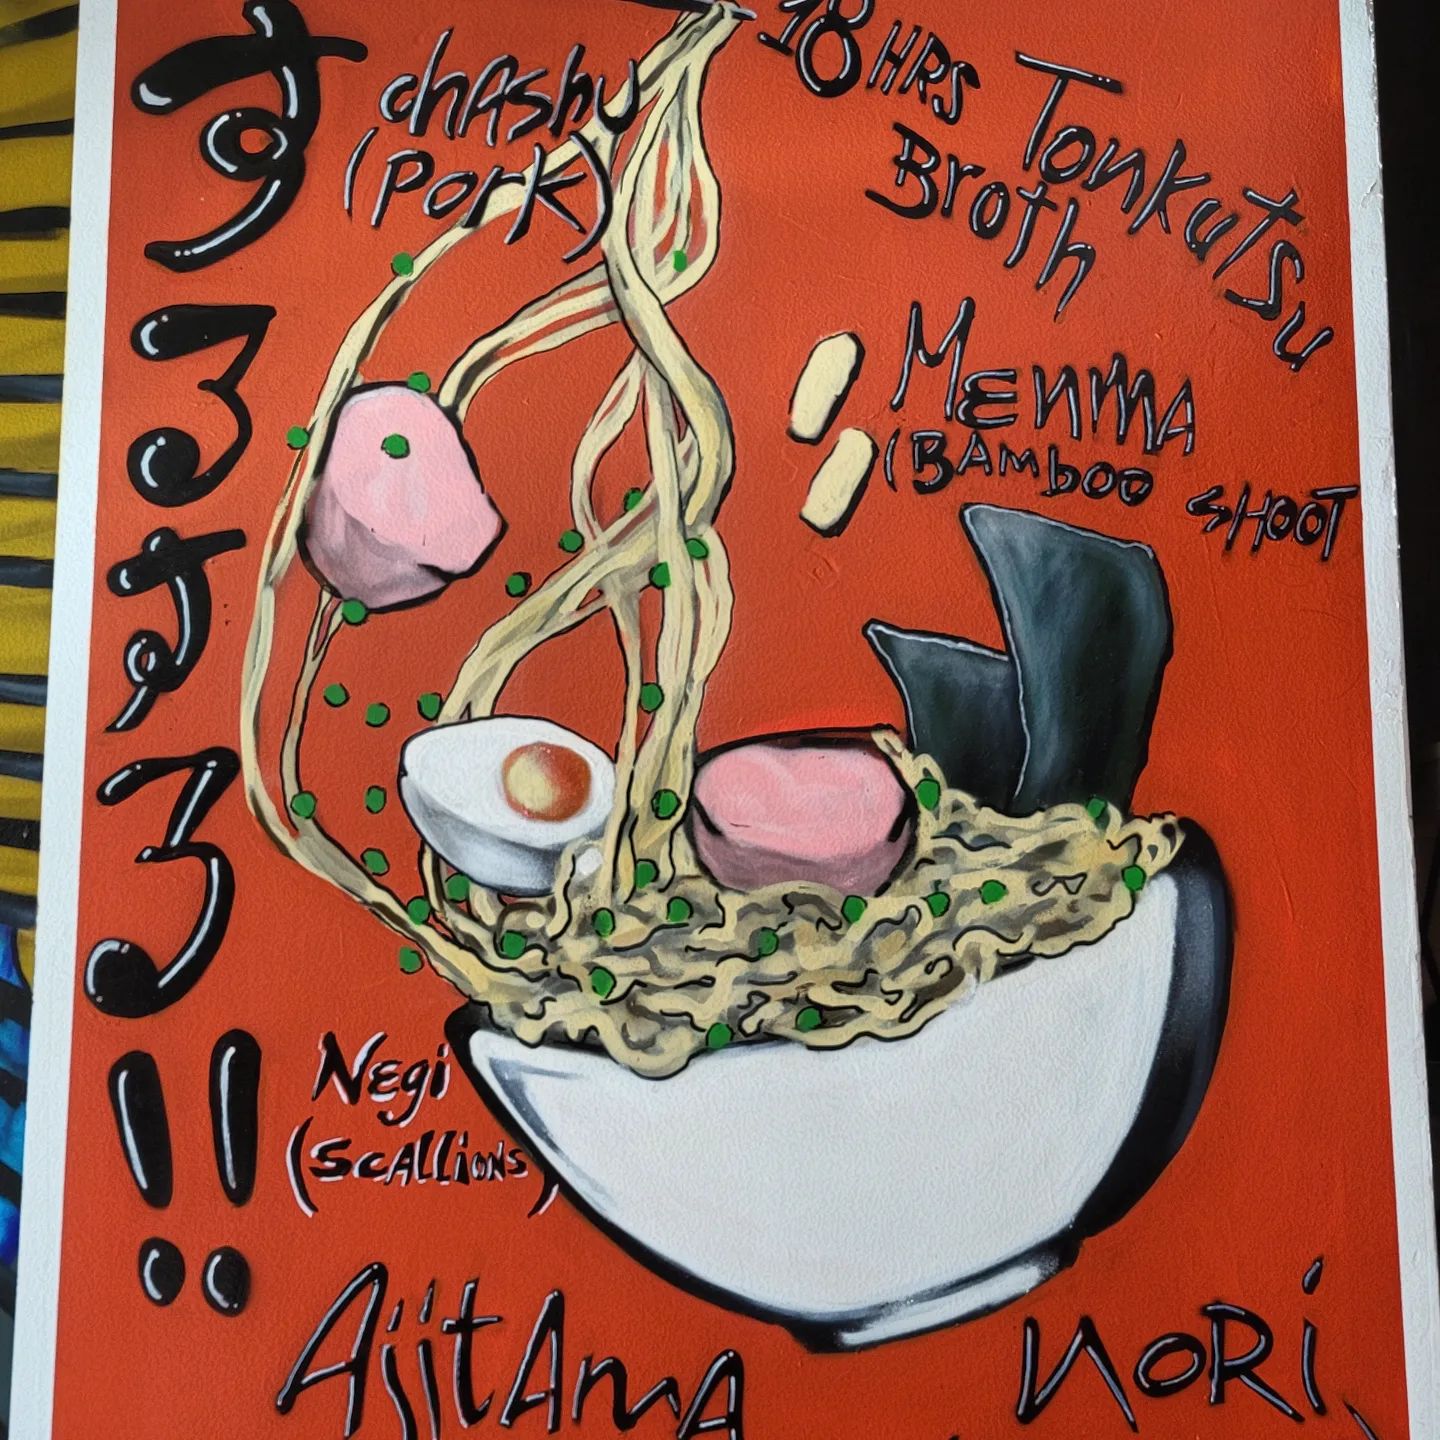 するする!!
chAshu
(Pork)
18 HRS Tonkutsu
Broth
MEnMA
(BAmboo SHOOT
NEgi
(ScAlliONs)
AjitAmA
NORi